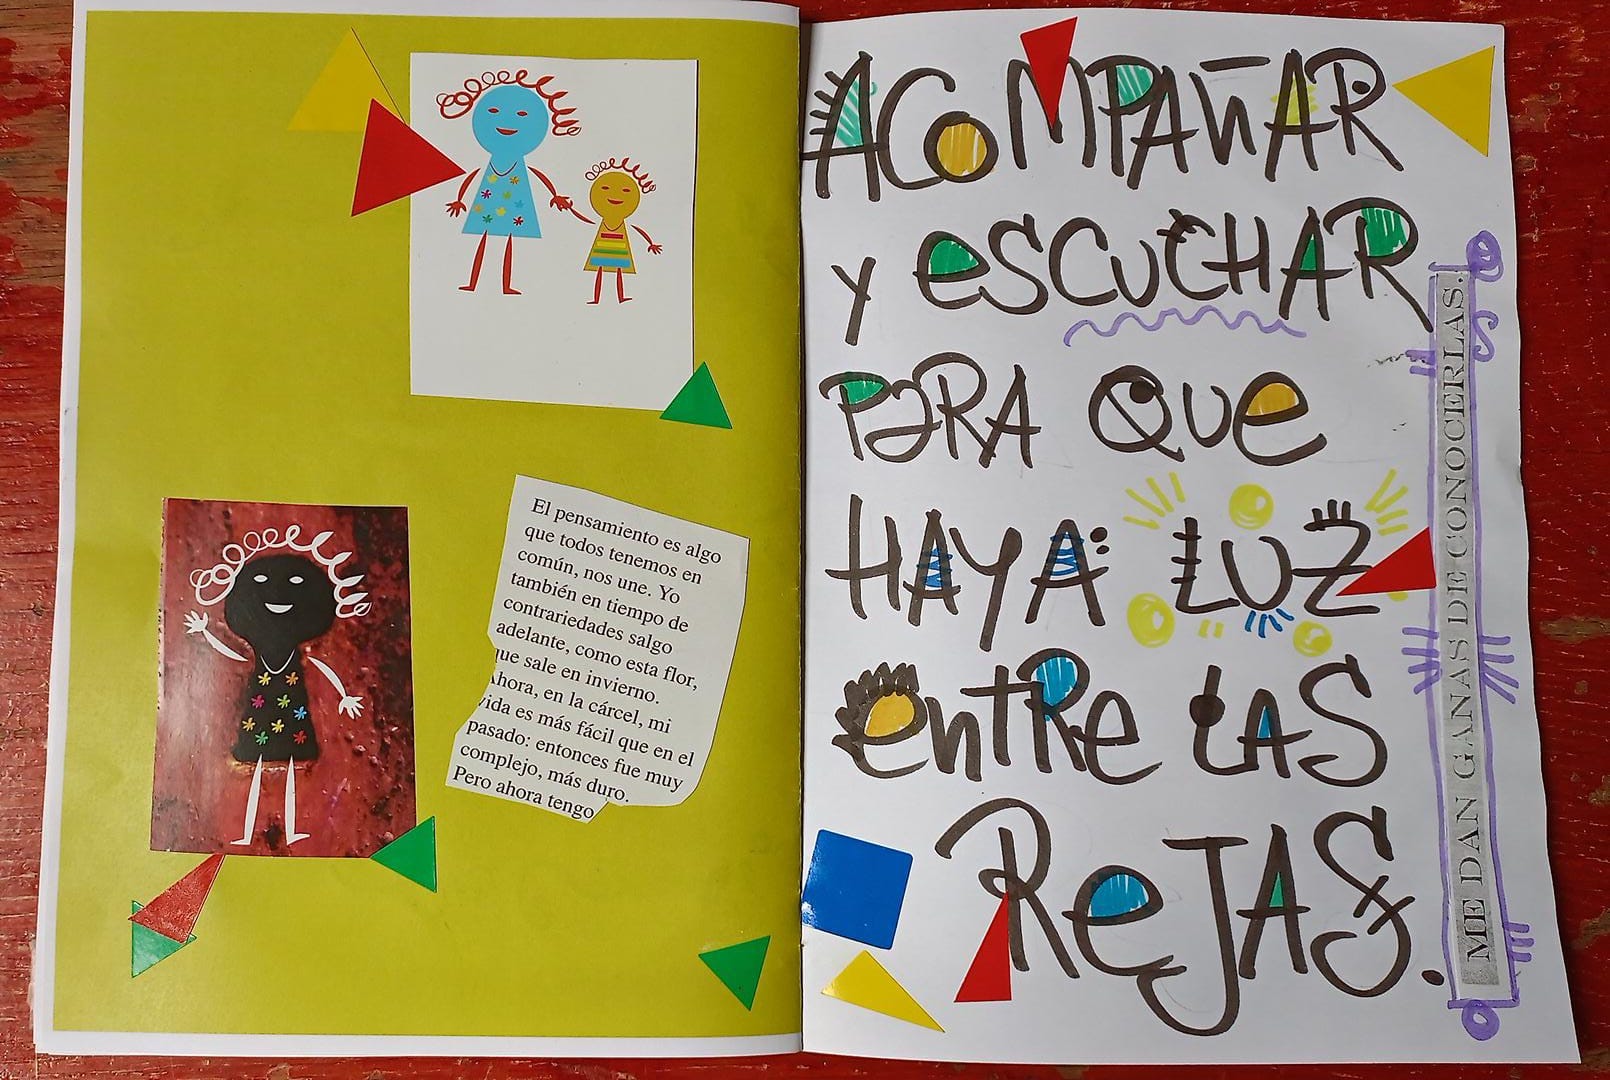 El pensamiento es algo
que todos tenemos en
común, nos une. Yo
también en tiempo de
contrariedades salgo
adelante, como esta flor,
que sale en invierno.
Ahora, en la cárcel, mi
vida es más fácil que en el
pasado: entonces fue muy
complejo, más duro.
Pero ahora tengo
ACOMPAÑAR
y eSCUCHAR
PARA QUe
HAYA LUZ
entRe LAS
ReJAS.
ME DAN GANAS DE CONOCERLAS.